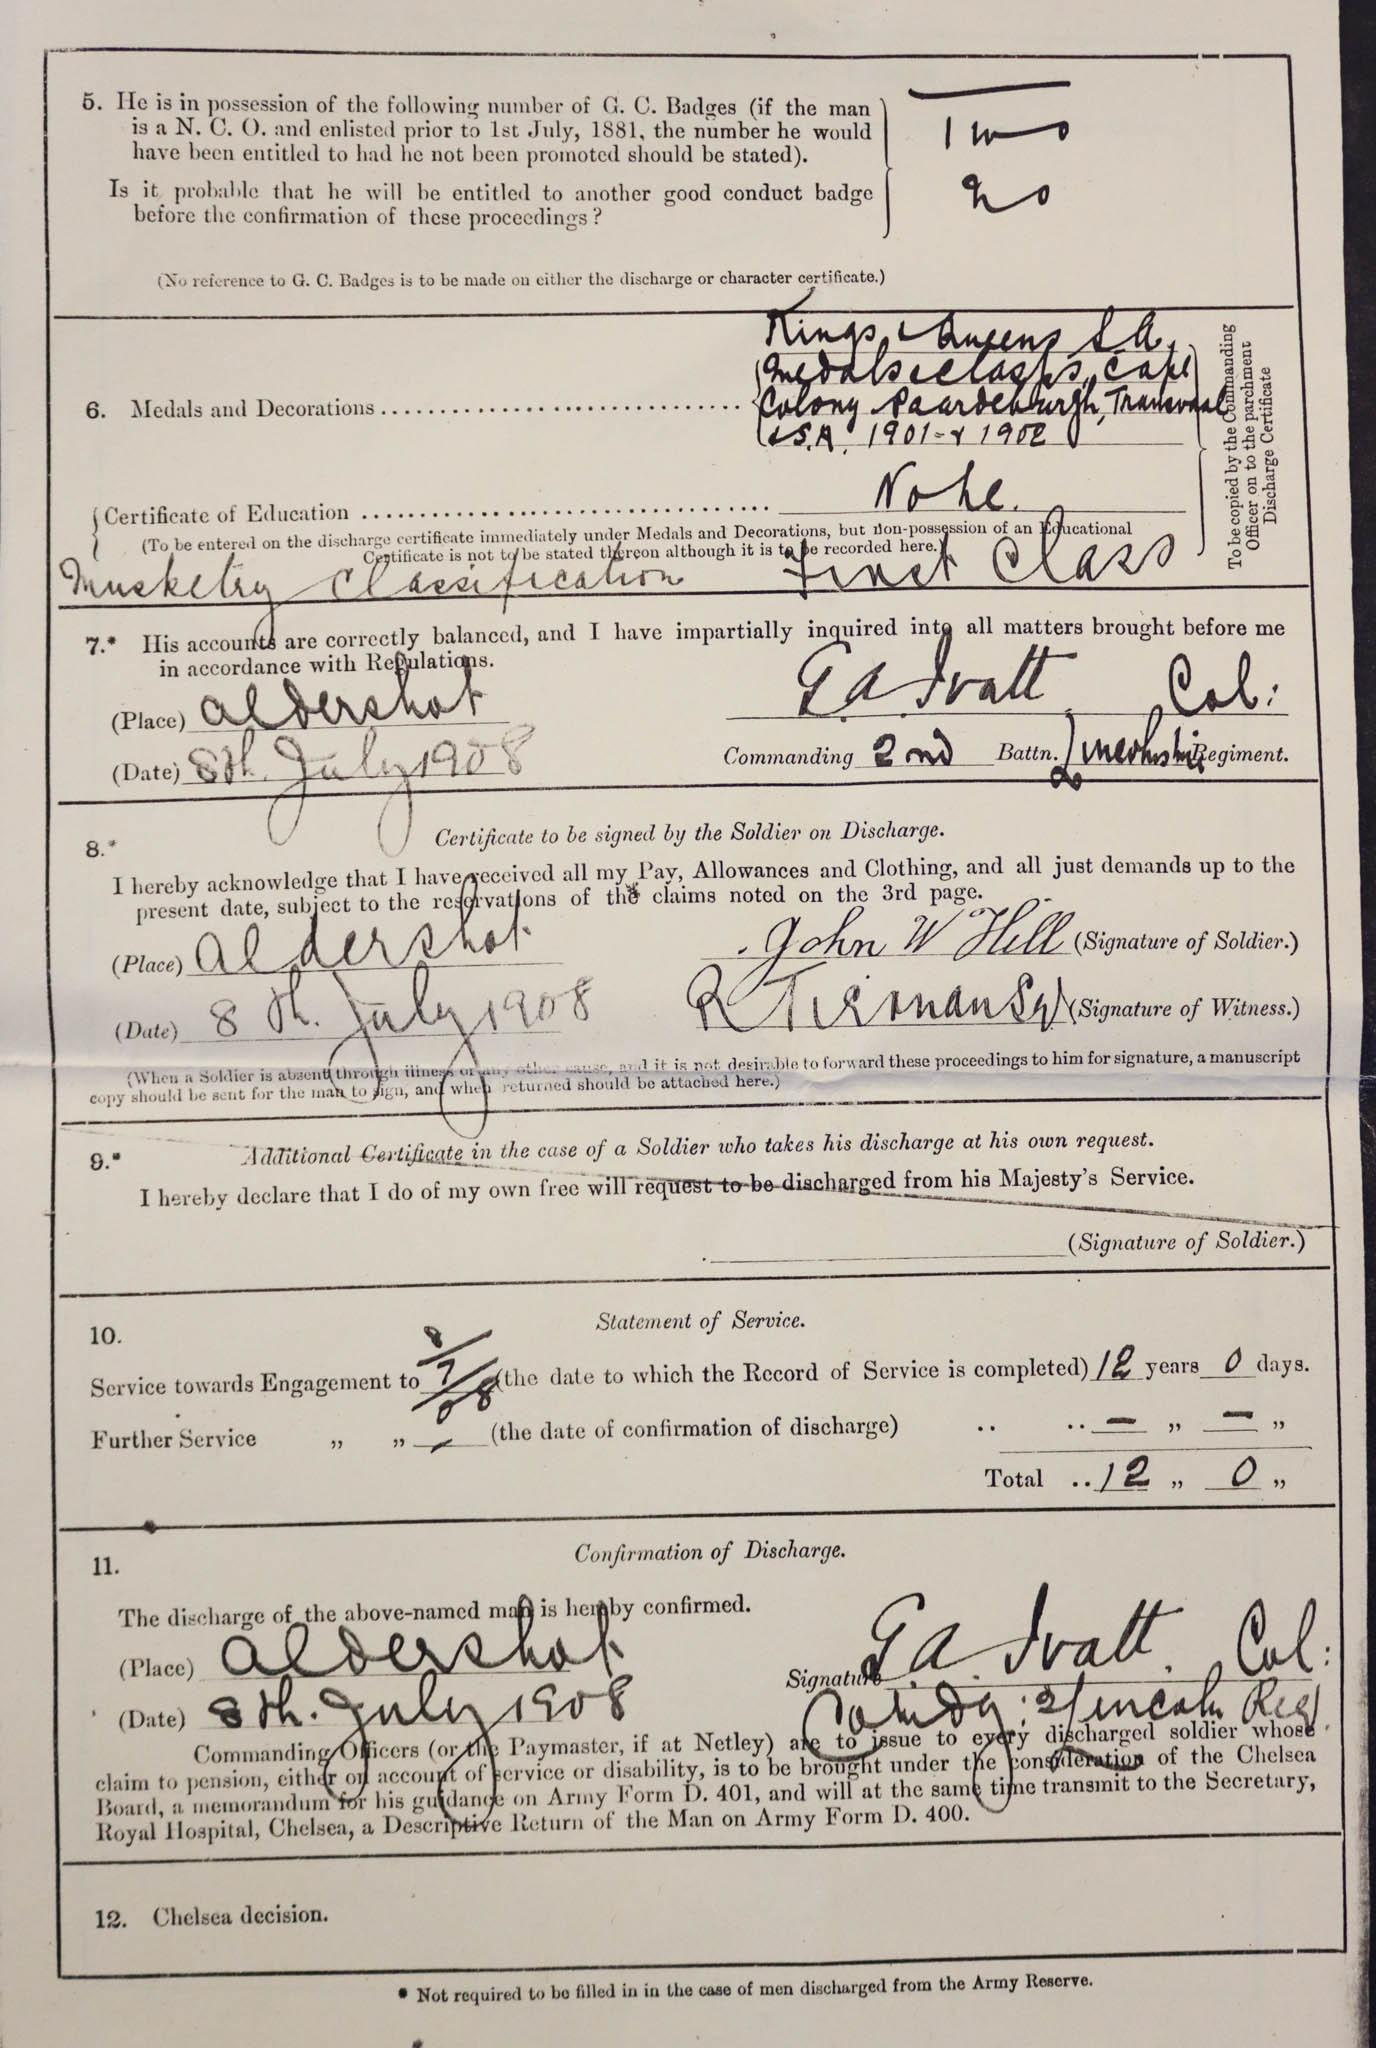 5. He is in possession of the following number of G. C. Badges (if the man
is a N. C. O. and enlisted prior to 1st July, 1881, the number he would
have been entitled to had he not been promoted should be stated).
Two
Is it probable that he will be entitled to another good conduct badge
before the confirmation of these proceedings?
No
(No reference to G. C. Badges is to be made on either the discharge or character certificate.)
Kings & Queens S A.
Medals & Clasps, Cape
6. Medals and Decorations
Colony Paardeburgh, Transvaal
& S.A. 1901 - & 1902
To be copied by the Commanding
Officer on to the parchment
Discharge Certificate
Certificate of Education
None.
(To be entered on the discharge certificate immediately under Medals and Decorations, but non-possession of an Educational
Certificate is not to be stated thereon although it is to be recorded here.)
Musketry Classification First Class
7.* His accounts are correctly balanced, and I have impartially inquired into all matters brought before me
in accordance with Regulations.
(Place) Aldershot
G. A. Ivatt Col:
(Date) 8th. July 1908
Commanding 2nd Battn. Lincolnshire Regiment.
8.* Certificate to be signed by the Soldier on Discharge.
I hereby acknowledge that I have received all my Pay, Allowances and Clothing, and all just demands up to the
present date, subject to the reservations of the claims noted on the 3rd page.
(Place) Aldershot
John W Hill (Signature of Soldier.)
(Date) 8th. July 1908
R (Signature of Witness.)
(When a Soldier is absent through illness or any other cause, and it is not desirable to forward these proceedings to him for signature, a manuscript
copy should be sent for the man to sign, and when returned should be attached here.)
9.* Additional Certificate in the case of a Soldier who takes his discharge at his own request.
I hereby declare that I do of my own free will request to be discharged from his Majesty's Service.
(Signature of Soldier.)
10. Statement of Service.
Service towards Engagement to 8/7/08 (the date to which the Record of Service is completed) 12 years 0 days.
Further Service „ „ – (the date of confirmation of discharge) .. .. – „ – „
Total .. 12 „ 0 „
11. Confirmation of Discharge.
The discharge of the above-named man is hereby confirmed.
(Place) Aldershot
Signature G. A. Ivatt. Col:
(Date) 8th. July 1908
Comdg: 2/Lincoln Reg
Commanding Officers (or the Paymaster, if at Netley) are to issue to every discharged soldier whose
claim to pension, either on account of service or disability, is to be brought under the consideration of the Chelsea
Board, a memorandum for his guidance on Army Form D. 401, and will at the same time transmit to the Secretary,
Royal Hospital, Chelsea, a Descriptive Return of the Man on Army Form D. 400.
12. Chelsea decision.
* Not required to be filled in in the case of men discharged from the Army Reserve.